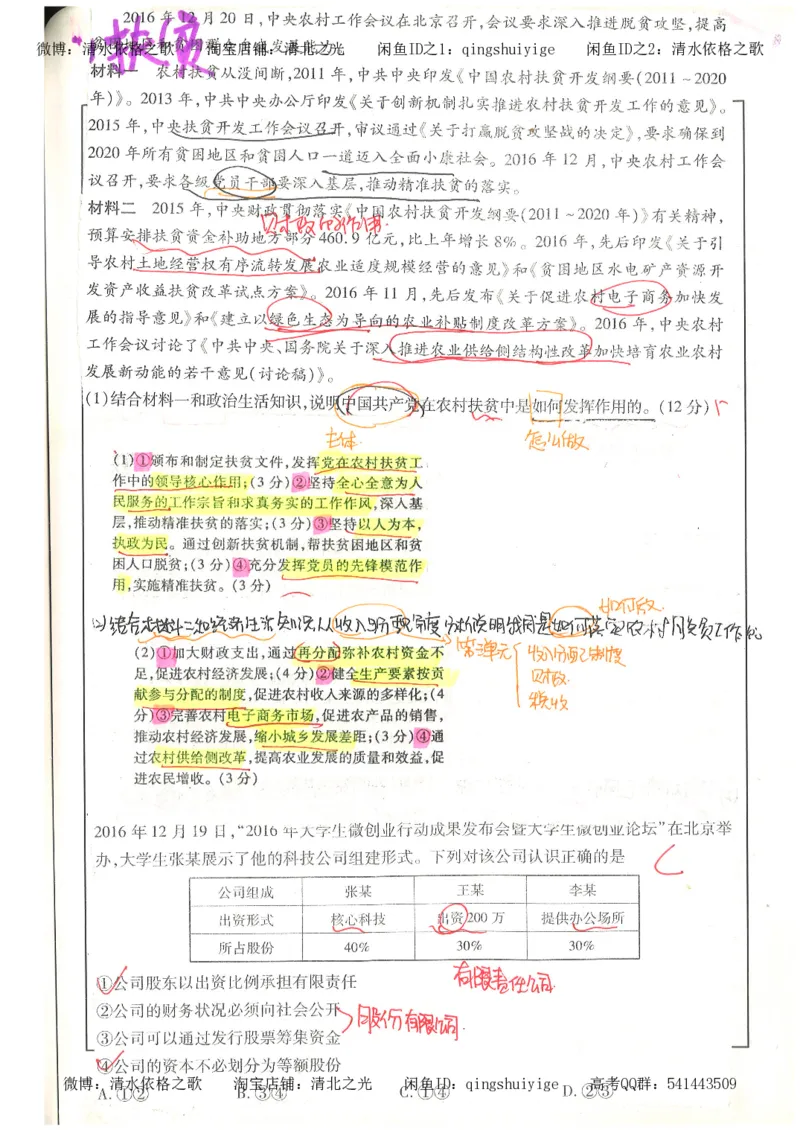 2016年12月20日,中央农村工作会议在北京召开,会议要求深入推进脱贫攻坚,提高
微博：清水依格之歌 淘宝店铺：清北之光 闲鱼ID之1：qingshuiyige 闲鱼ID之2：清水依格之歌
扶贫
材料一 农村扶贫从没间断,2011年,中共中央印发《中国农村扶贫开发纲要(2011~2020
年)》。2013年,中共中央办公厅印发《关于创新机制扎实推进农村扶贫开发工作的意见》。
2015年,中央扶贫开发工作会议召开,审议通过《关于打赢脱贫攻坚战的决定》,要求确保到
2020年所有贫困地区和贫困人口一道迈入全面小康社会。2016年12月,中央农村工作会
议召开,要求各级党员干部要深入基层,推动精准扶贫的落实。
材料二 2015年,中央财政贯彻落实《中国农村扶贫开发纲要(2011~2020年)》有关精神,
财政的作用.
预算安排扶贫资金补助地方部分460.9亿元,比上年增长8%。2016年,先后印发《关于引
导农村土地经营权有序流转发展农业适度规模经营的意见》和《贫困地区水电矿产资源开
发资产收益扶贫改革试点方案》。2016年11月,先后发布《关于促进农村电子商务加快发
展的指导意见》和《建立以绿色生态为导向的农业补贴制度改革方案》。2016年,中央农村
工作会议讨论了《中共中央、国务院关于深入推进农业供给侧结构性改革加快培育农业农村
发展新动能的若干意见(讨论稿)》。
(1)结合材料一和政治生活知识,说明中国共产党在农村扶贫中是如何发挥作用的。(12分)
主体 怎么做
(1)①颁布和制定扶贫文件,发挥党在农村扶贫工
作中的领导核心作用;(3分)②坚持全心全意为人
民服务的工作宗旨和求真务实的工作作风,深入基
层,推动精准扶贫的落实;(3分)③坚持以人为本,
执政为民。通过创新扶贫机制,帮扶贫困地区和贫
困人口脱贫;(3分)④充分发挥党员的先锋模范作
用,实施精准扶贫。(3分)
如何做.
(2)结合材料二和经济生活知识从收入分配角度分析说明我国是如何落实农村扶贫工作的
(2)①加大财政支出,通过再分配弥补农村资金不
足,促进农村经济发展;(4分)②健全生产要素按贡
献参与分配的制度,促进农村收入来源的多样化;(4
分)③完善农村电子商务市场,促进农产品的销售,
推动农村经济发展,缩小城乡发展差距;(3分)④通
过农村供给侧改革,提高农业发展的质量和效益,促
进农民增收。(3分)
第三单元
收入分配制度
财政.
税收
2016年12月19日,“2016年大学生微创业行动成果发布会暨大学生微创业论坛”在北京举
办,大学生张某展示了他的科技公司组建形式。下列对该公司认识正确的是
C
公司组成 张某 王某 李某
出资形式 核心科技 出资200万 提供办公场所
所占股份 40% 30% 30%
①公司股东以出资比例承担有限责任
有限责任公司
②公司的财务状况必须向社会公开
股份有限公司.
③公司可以通过发行股票筹集资金
④公司的资本不必划分为等额股份
微博：清水依格之歌 淘宝店铺：清北之光 闲鱼ID：qingshuiyige 高考QQ群：541443509
A.①② B.③④ C.①④ D.②③